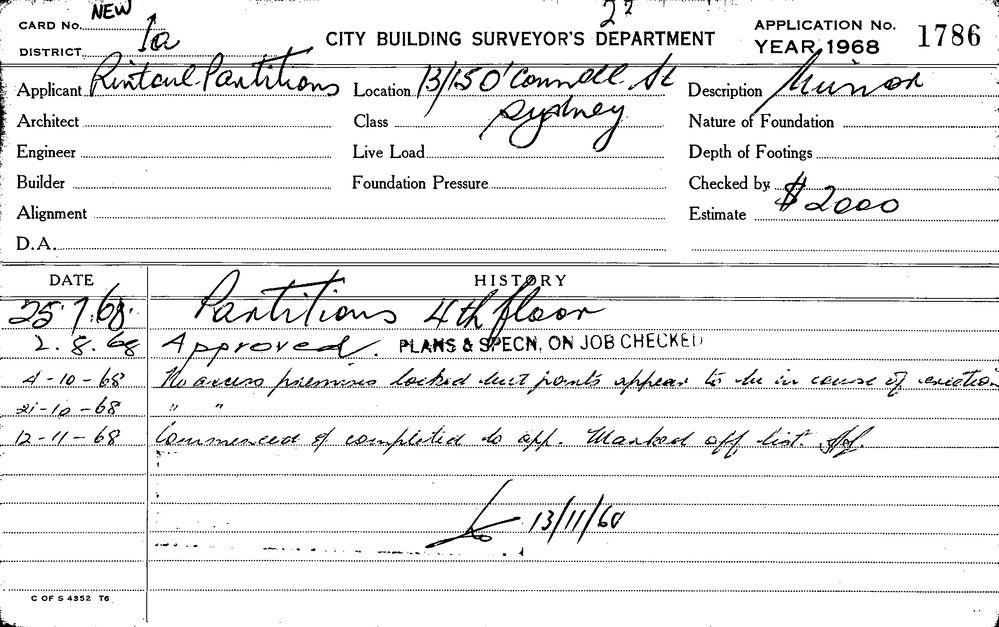 NEW
CARD No.
2?
DISTRICT 1a
CITY BUILDING SURVEYOR'S DEPARTMENT
APPLICATION No. 1786
YEAR 1968
Applicant Rintoul Partitions
Location 13/15 O'Connell St
Sydney
Description Minor
Architect
Class
Nature of Foundation
Engineer
Live Load
Depth of Footings
Builder
Foundation Pressure
Checked by
Alignment
Estimate $2000
D.A.
DATE HISTORY
25.7.68. Partitions 4th floor
2.8.68 Approved. PLANS & SPECN, ON JOB CHECKED
4-10-68 No access premises locked but appear to be in course of erection
21-10-68 " "
12-11-68 Commenced & completed to app. Marked off list.
13/11/68
C OF S 4352 T6